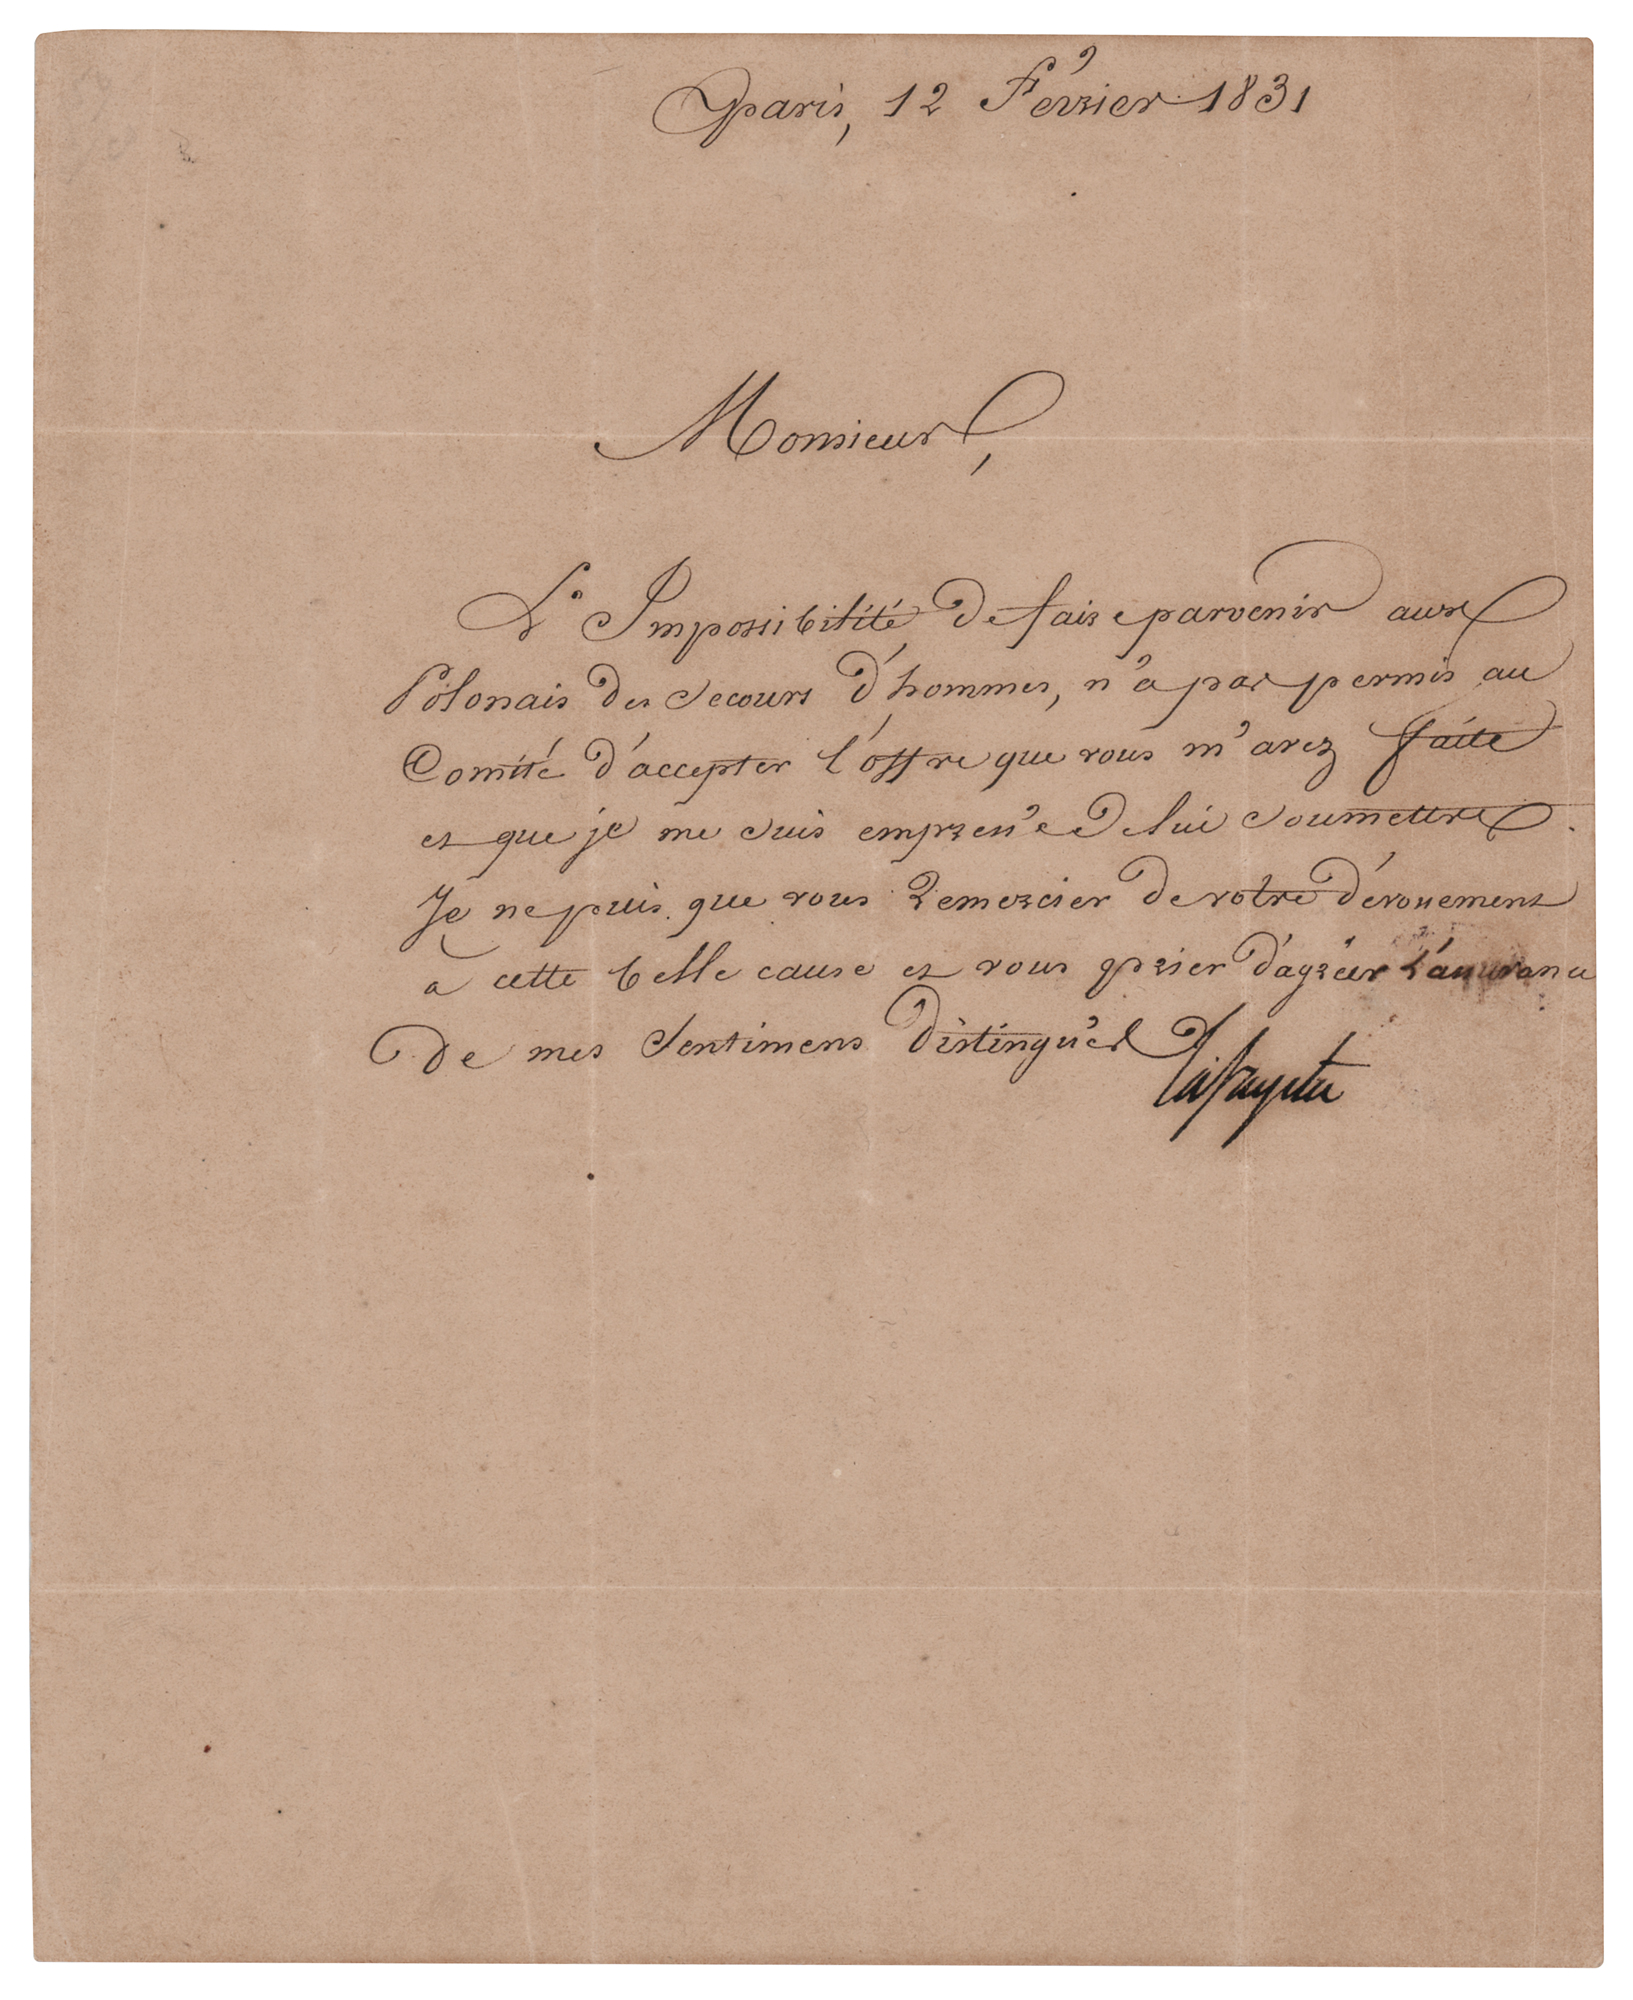 Paris, 12 Février 1831
Monsieur,
L'Impossibilité de faire parvenir aux
Polonais des secours d'hommes, n'a pas permis au
Comité d'accepter l'offre que vous m'avez faite
et que je me suis empressé de lui soumettre.
Je ne puis que vous remercier de votre dévouement
à cette belle cause et vous prier d'agréer l'assurance
de mes sentimens distingués
Lafayette